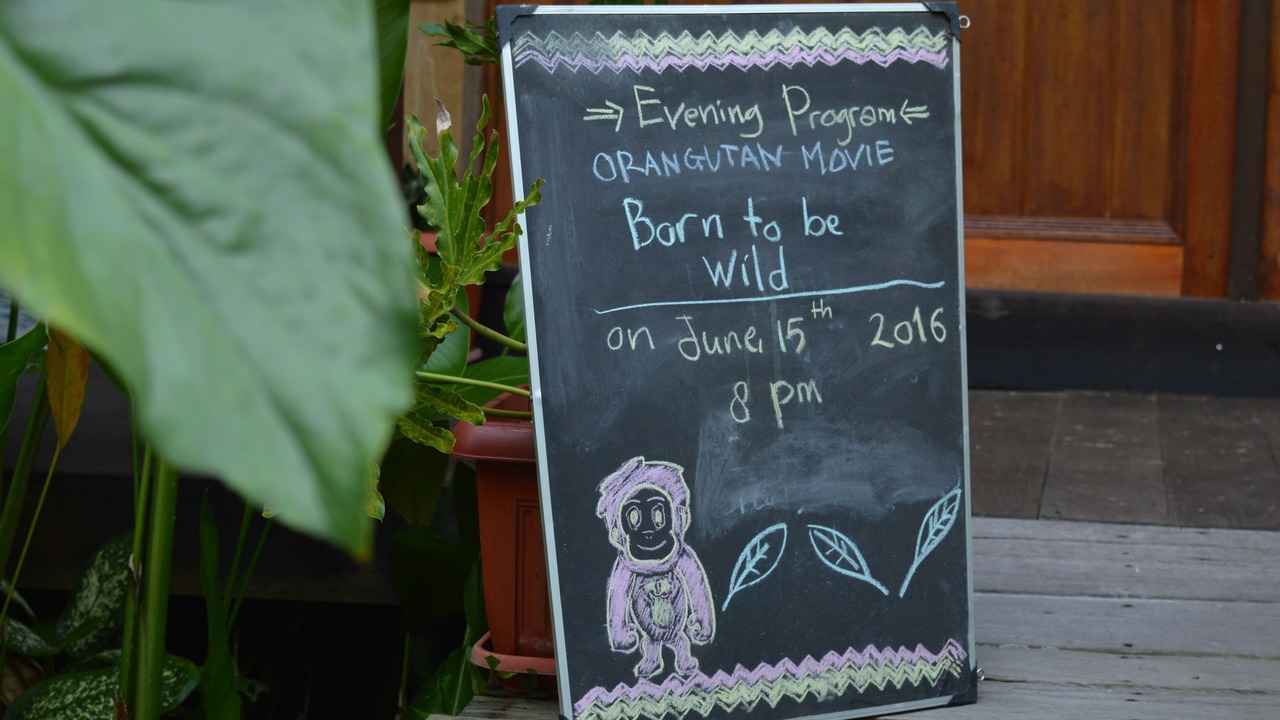 ⇒ Evening Program ⇐
ORANGUTAN MOVIE
Born to be
Wild
on June, 15th 2016
8 pm